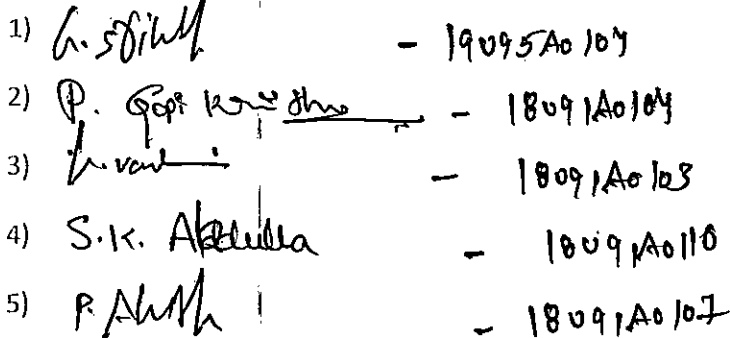 1) - 19095A0107
2) P. Gopi Krishna - 18091A0104
3) - 18091A0103
4) S.K. Abdulla - 18091A0110
5) P. - 18091A0107